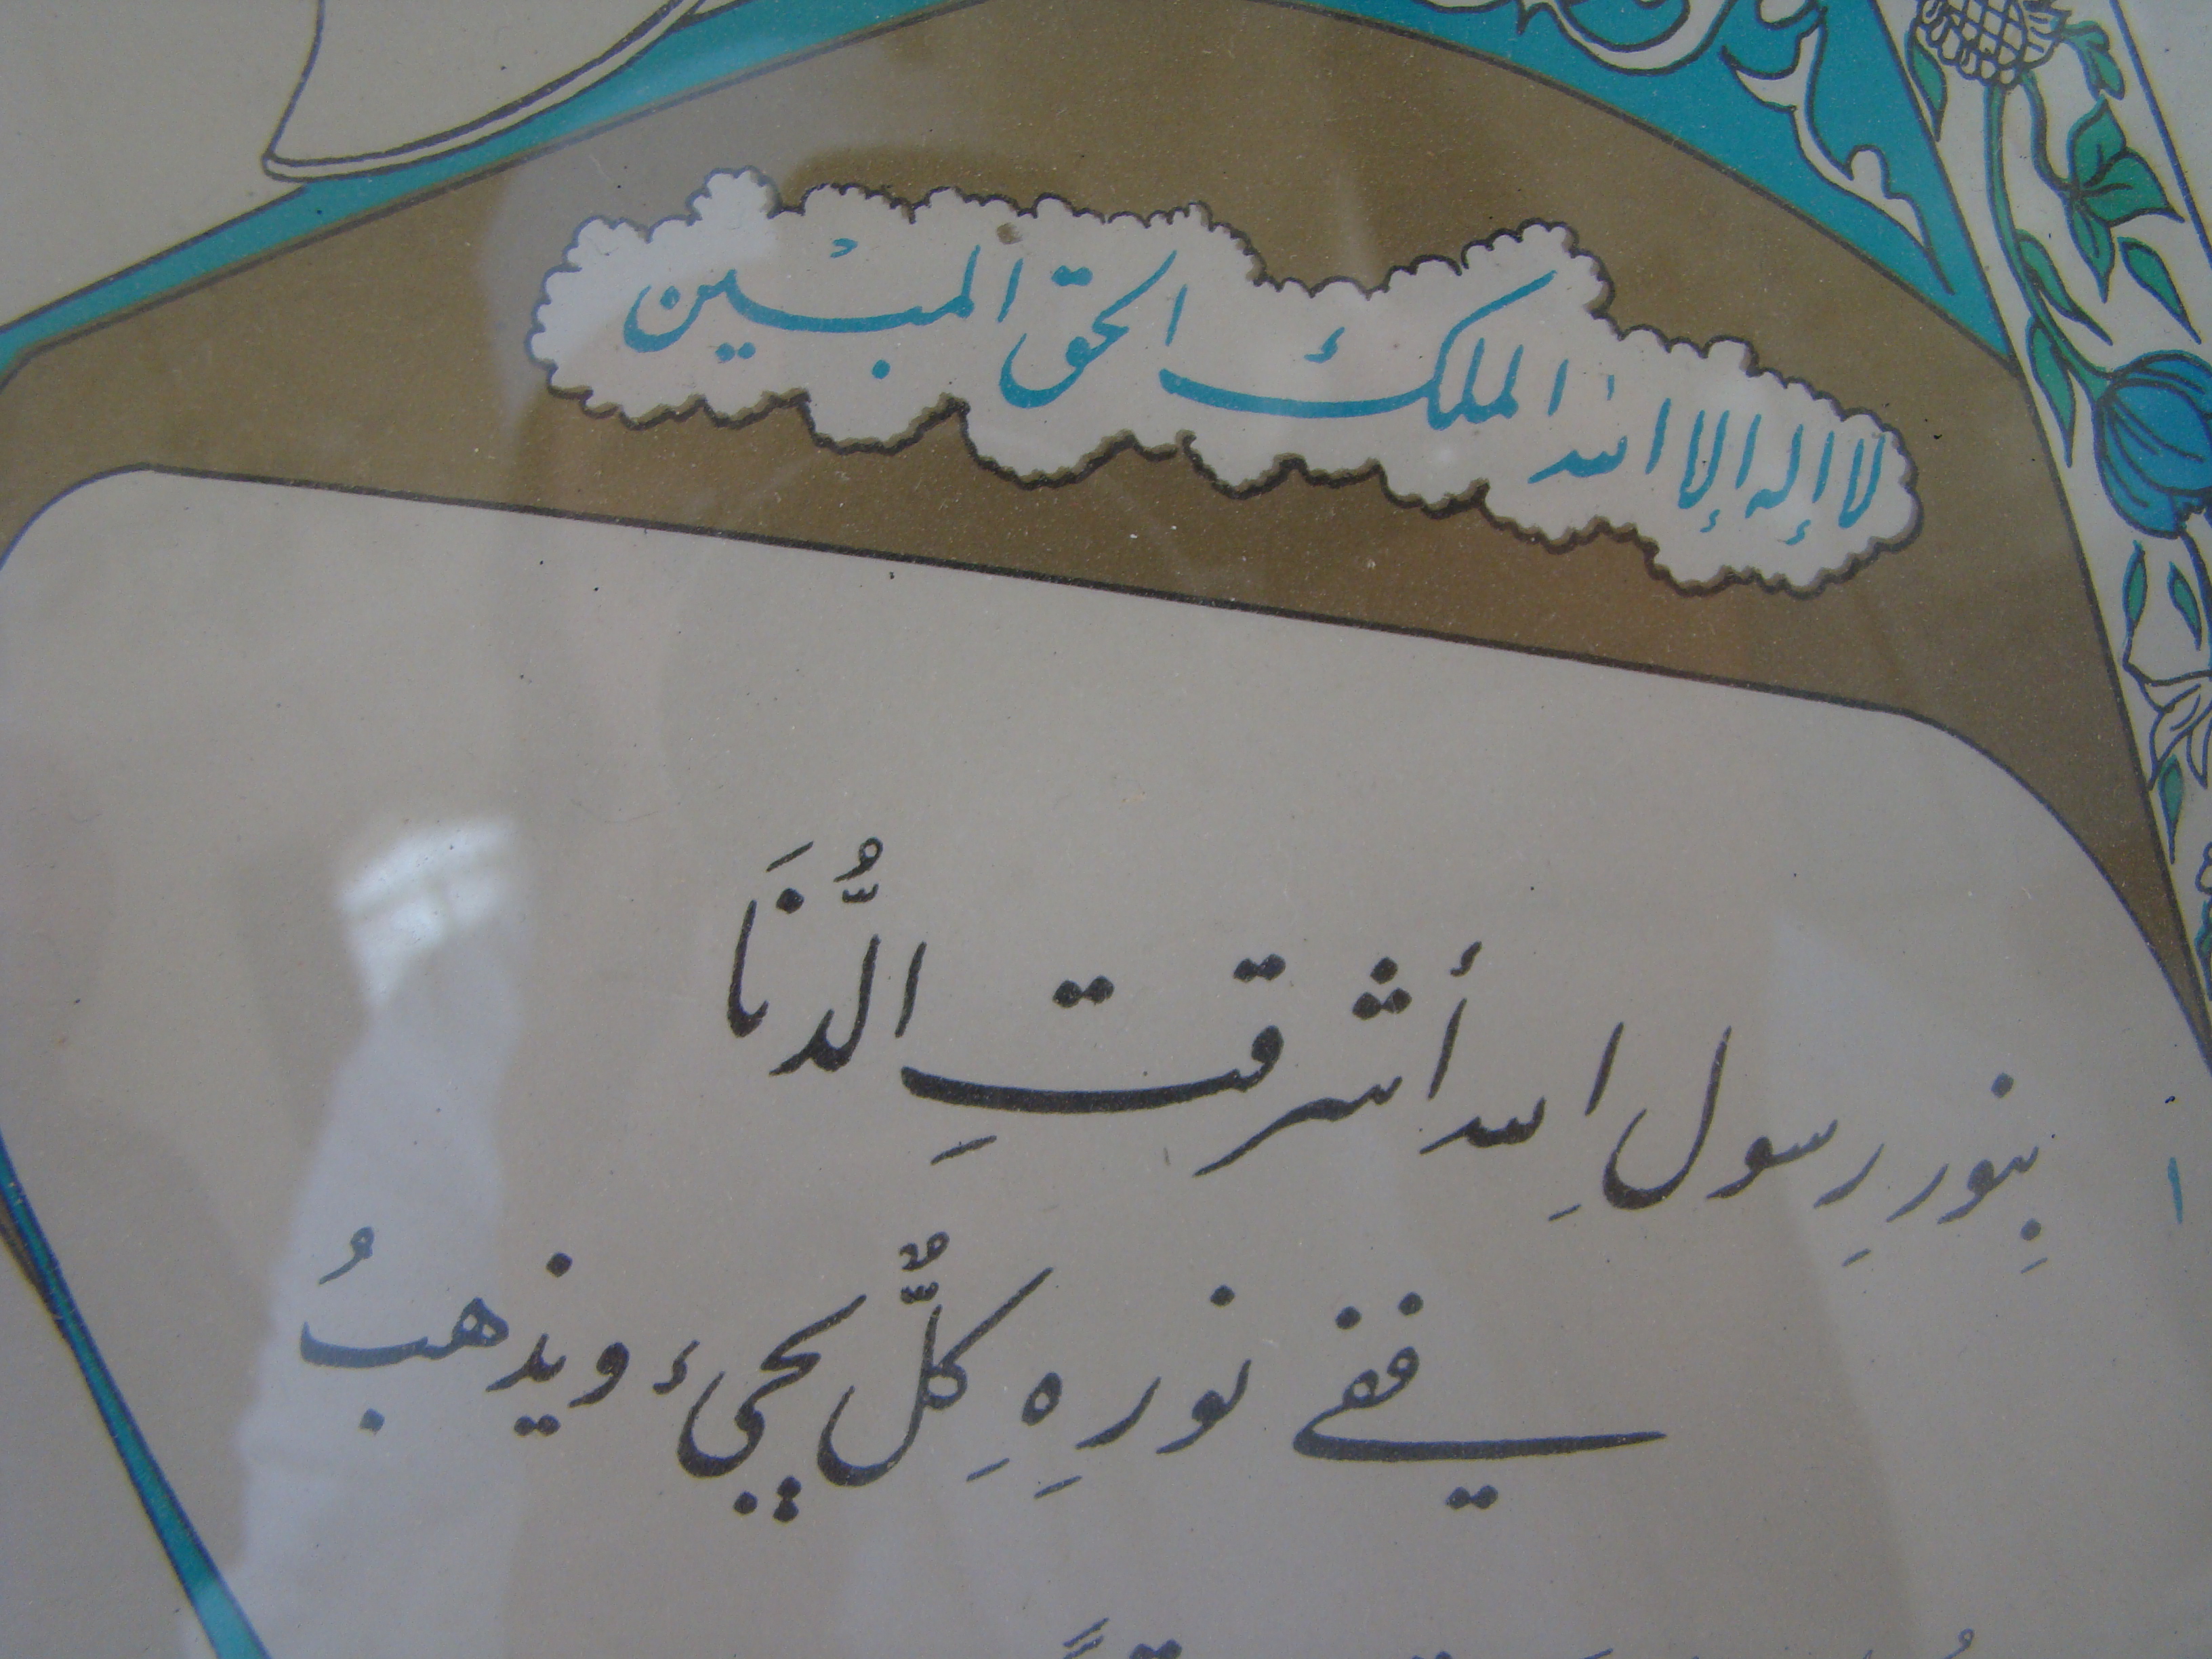 لا إله إلا الله الملك الحق المبين
بِنور رِسول اِلله أشرقتِ الدُّنَا
ففي نورِهِ كِلٌّ يجيء ويذهبُ